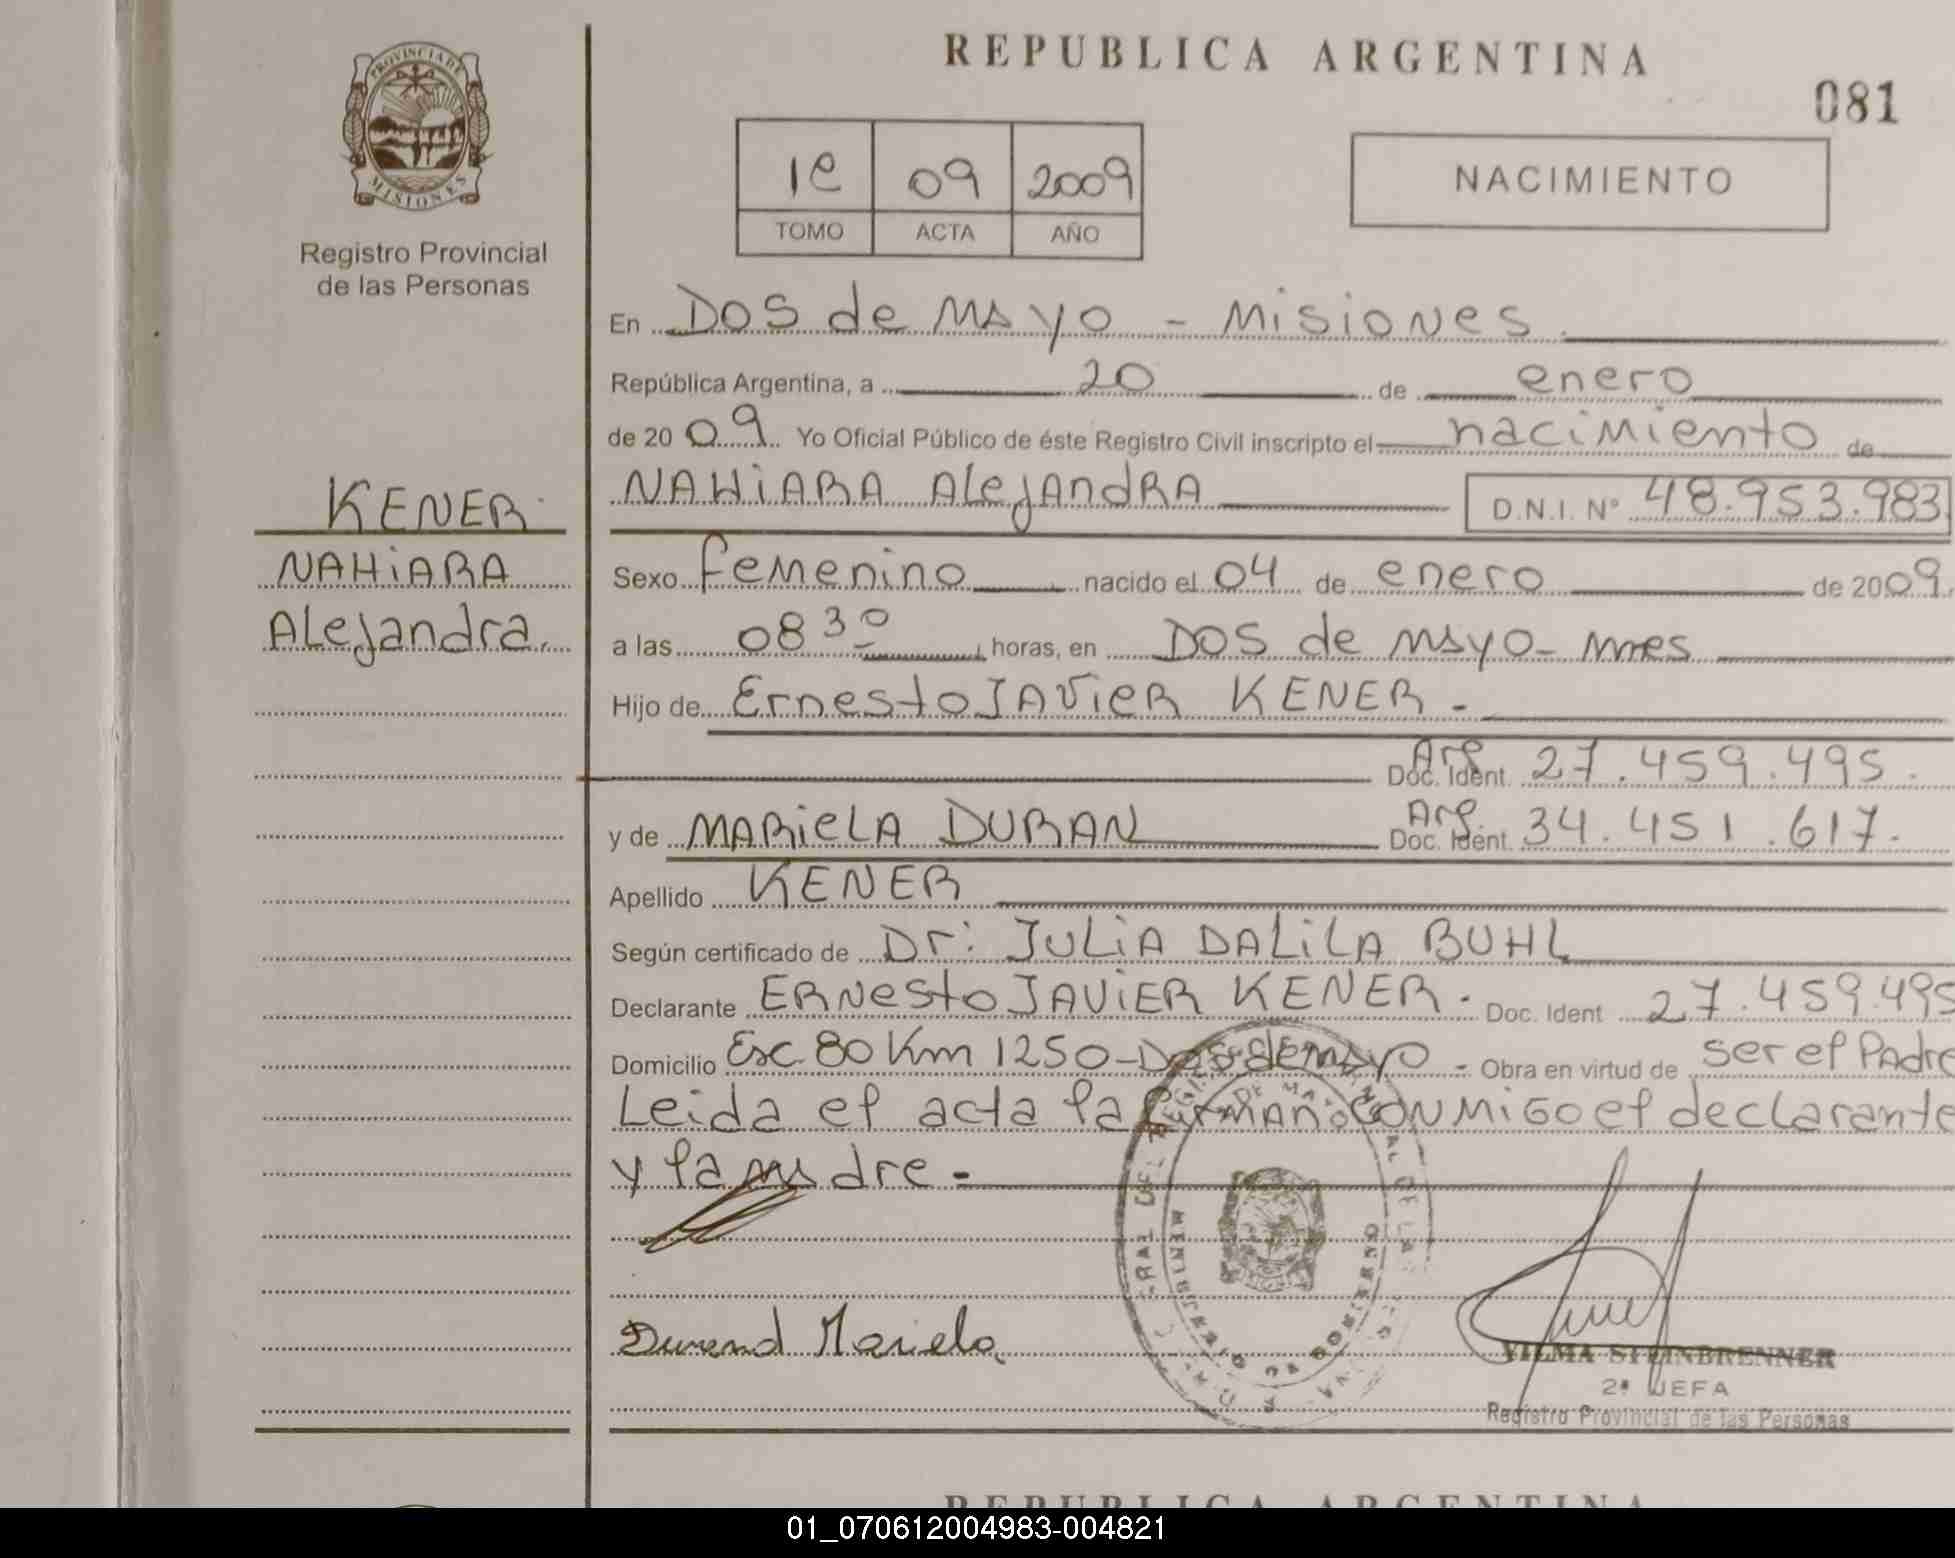 REPUBLICA ARGENTINA
081
PROVINCIA DE
MISIONES
Registro Provincial
de las Personas
1e 09 2009
TOMO ACTA AÑO
NACIMIENTO
En Dos de Mayo - Misiones.
República Argentina, a 20 de enero
de 2009 Yo Oficial Público de éste Registro Civil inscripto el nacimiento de
NAHiARA Alejandra D.N.I. Nº 48.953.983
KENER
NAHiARA
Alejandra.
Sexo femenino nacido el 04 de enero de 2009.
a las 08 30 horas, en Dos de Mayo - Mnes
Hijo de Ernesto Javier KENER -
Arg.
Doc. Ident. 27.459.495.
y de MARiELA DURAN Arg. Doc. Ident. 34.451.617.
Apellido KENER
Según certificado de Dr: JULiA DALiLA BUHL
Declarante ERNesto JAViER KENER. Doc. Ident 27.459.495
Domicilio Esc. 80 Km 1250 - Dos de Mayo - Obra en virtud de ser el Padre
Leida el acta la firman conmigo el declarante
y la madre -
DE MAYO
MINISTERIO DE GOBIERNO
Durand Mariela
VILMA STEINBRENNER
2ª JEFA
Registro Provincial de las Personas
REPUBLICA ARGENTINA
01_070612004983-004821